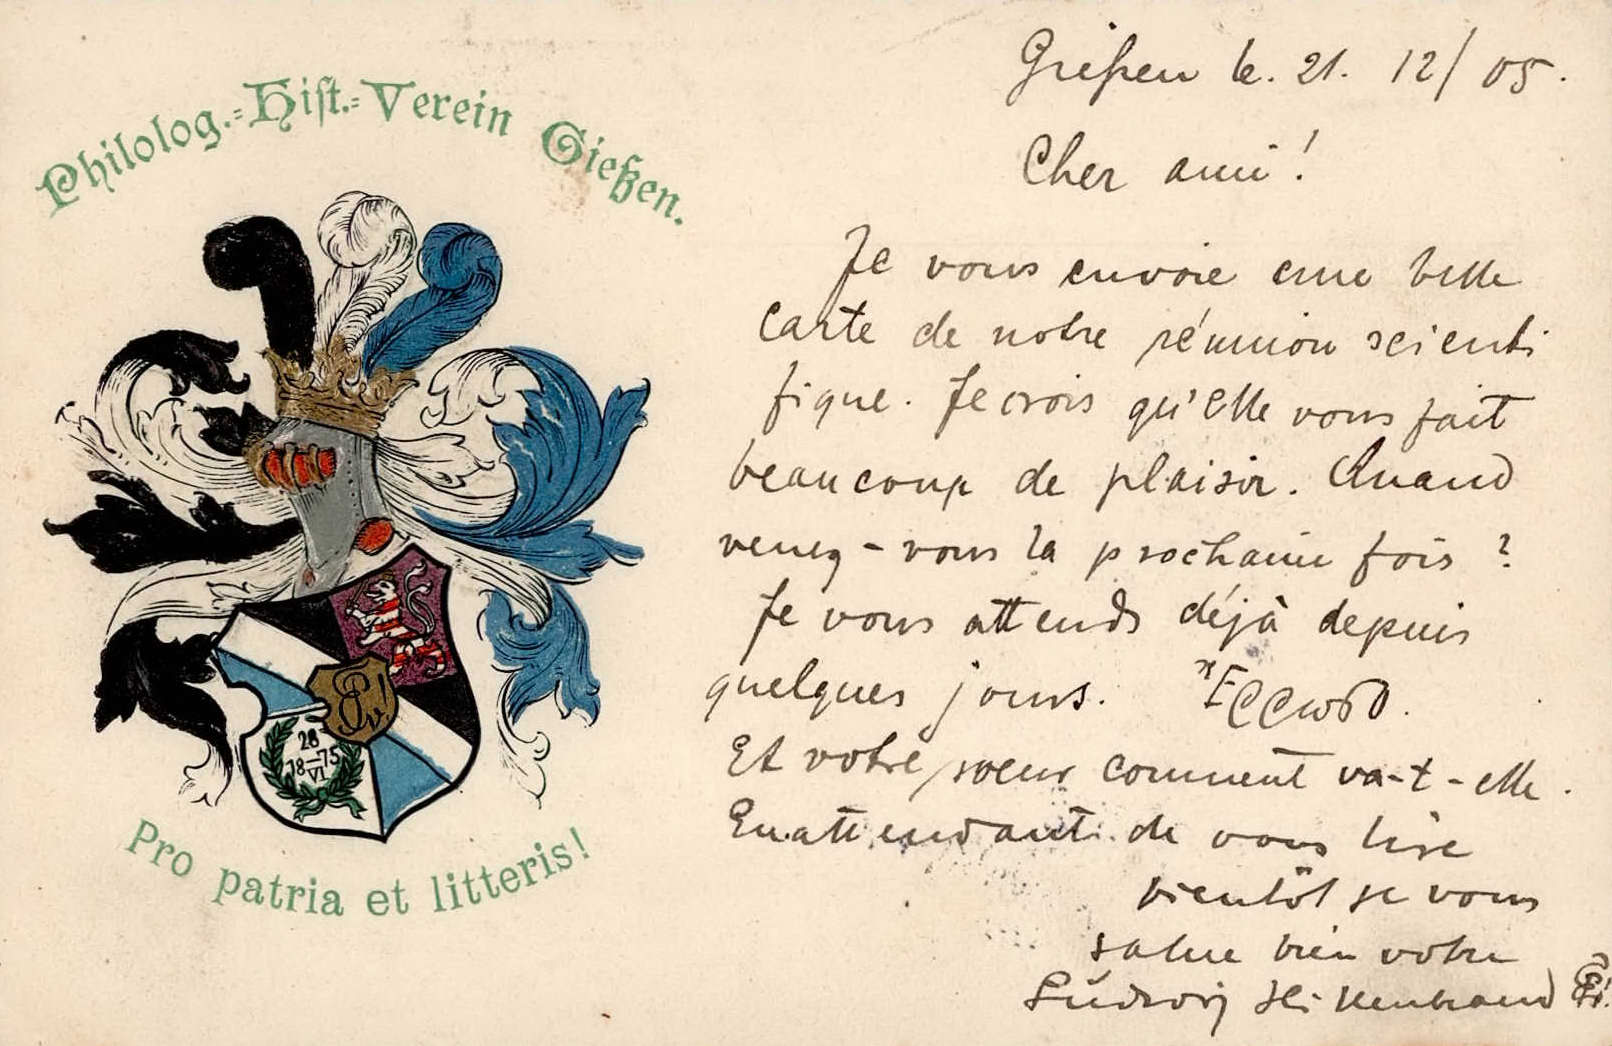 Philolog.=Hist.=Verein Gießen.
28
18–75
VI
Pro patria et litteris!
Gießen le. 21. 12/05.
Cher ami!
Je vous envoie une belle
carte de notre réunion scienti
fique. Je crois qu'elle vous fait
beaucoup de plaisir. Quand
venez-vous la prochaine fois?
Je vous attends déjà depuis
quelques jours.
Et votre soeur comment va-t-elle.
En attendant de vous lire
bientôt je vous
salue bien votre
Ludwig